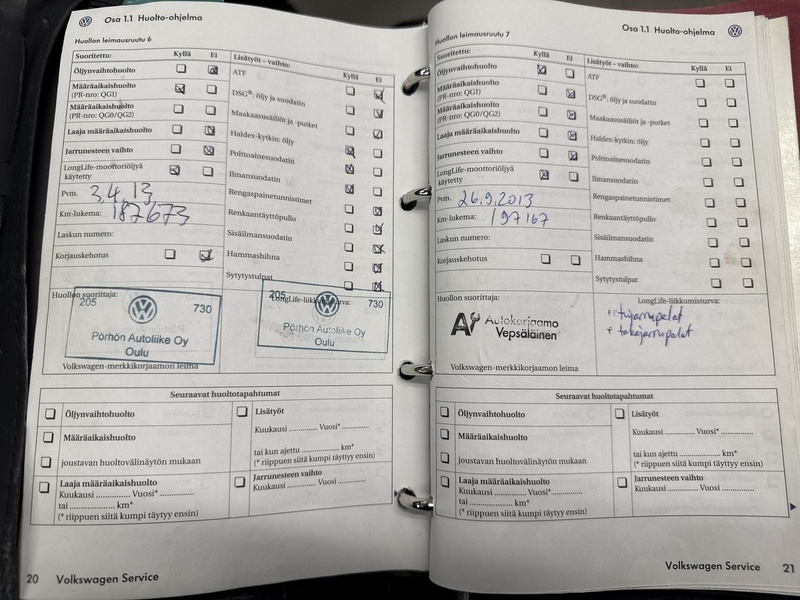 Osa 1.1 Huolto-ohjelma
Huollon leimausruutu 6
Suoritettu: Kyllä Ei
Öljynvaihtohuolto
Määräaikaishuolto
(PR-nro: QG1)
Määräaikaishuolto
(PR-nro: QG0/QG2)
Laaja määräaikaishuolto
Jarrunesteen vaihto
LongLife-moottoriöljyä
käytetty
Pvm. 3.4.13
Km-lukema: 187673
Laskun numero:
Korjauskehotus
Lisätyöt – vaihto: Kyllä Ei
ATF
DSG®: öljy ja suodatin
Maakaasusäiliöt ja -putket
Haldex-kytkin: öljy
Polttoainesuodatin
Ilmansuodatin
Rengaspainetunnistimet
Renkaantäyttöpullo
Sisäilmansuodatin
Hammashihna
Sytytystulpat
Huollon suorittaja:
205 730
Pörhön Autoliike Oy
Oulu
Volkswagen-merkkikorjaamon leima
LongLife-liikkumisturva:
205 730
Pörhön Autoliike Oy
Oulu
Seuraavat huoltotapahtumat
Öljynvaihtohuolto
Määräaikaishuolto
joustavan huoltovälinäytön mukaan
Laaja määräaikaishuolto
Kuukausi ............. Vuosi* ...........
tai ..................... km*
(* riippuen siitä kumpi täyttyy ensin)
Lisätyöt
Kuukausi ............. Vuosi* ...........
tai kun ajettu ................. km*
(* riippuen siitä kumpi täyttyy ensin)
Jarrunesteen vaihto
Kuukausi ............. Vuosi ...........
20 Volkswagen Service
Osa 1.1 Huolto-ohjelma
Huollon leimausruutu 7
Suoritettu: Kyllä Ei
Öljynvaihtohuolto
Määräaikaishuolto
(PR-nro: QG1)
Määräaikaishuolto
(PR-nro: QG0/QG2)
Laaja määräaikaishuolto
Jarrunesteen vaihto
LongLife-moottoriöljyä
käytetty
Pvm. 26.9.2013
Km-lukema: 197167
Laskun numero:
Korjauskehotus
Lisätyöt – vaihto: Kyllä Ei
ATF
DSG®: öljy ja suodatin
Maakaasusäiliöt ja -putket
Haldex-kytkin: öljy
Polttoainesuodatin
Ilmansuodatin
Rengaspainetunnistimet
Renkaantäyttöpullo
Sisäilmansuodatin
Hammashihna
Sytytystulpat
Huollon suorittaja:
Autokorjaamo
Vepsäläinen
Volkswagen-merkkikorjaamon leima
LongLife-liikkumisturva:
+ etujarrupalat
+ takajarrupalat
Seuraavat huoltotapahtumat
Öljynvaihtohuolto
Määräaikaishuolto
joustavan huoltovälinäytön mukaan
Laaja määräaikaishuolto
Kuukausi ............. Vuosi* ...........
tai ..................... km*
(* riippuen siitä kumpi täyttyy ensin)
Lisätyöt
Kuukausi ............. Vuosi* ...........
tai kun ajettu ................. km*
(* riippuen siitä kumpi täyttyy ensin)
Jarrunesteen vaihto
Kuukausi ............. Vuosi ...........
Volkswagen Service 21